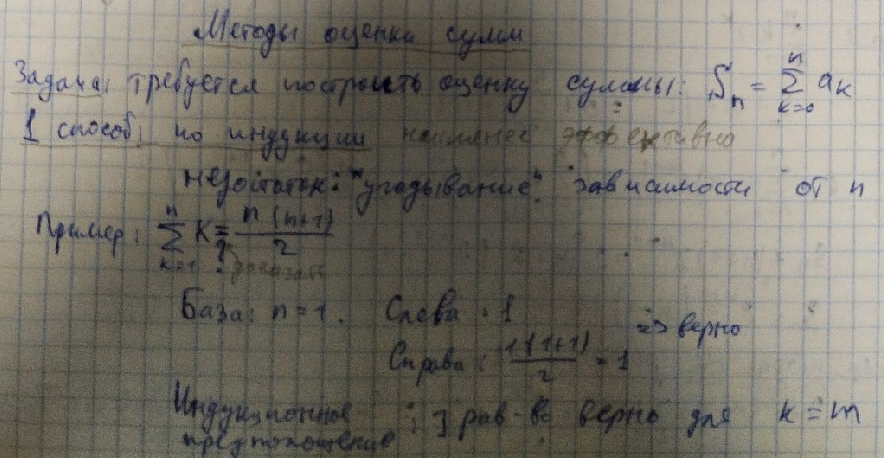 Методы оценки сумм
Задача: требуется построить оценку суммы: Sₙ = ∑ₖ₌₀ⁿ aₖ
1 способ: по индукции наименее эффективно
недостаток: "угадывание" зависимости от n
Пример: ∑ₖ₌₁ⁿ K = n(n+1)/2
? доказать
База: n = 1. Слева: 1
Справа: 1(1+1)/2 = 1 => верно
Индукционное предположение: ] рав-во верно для k = m